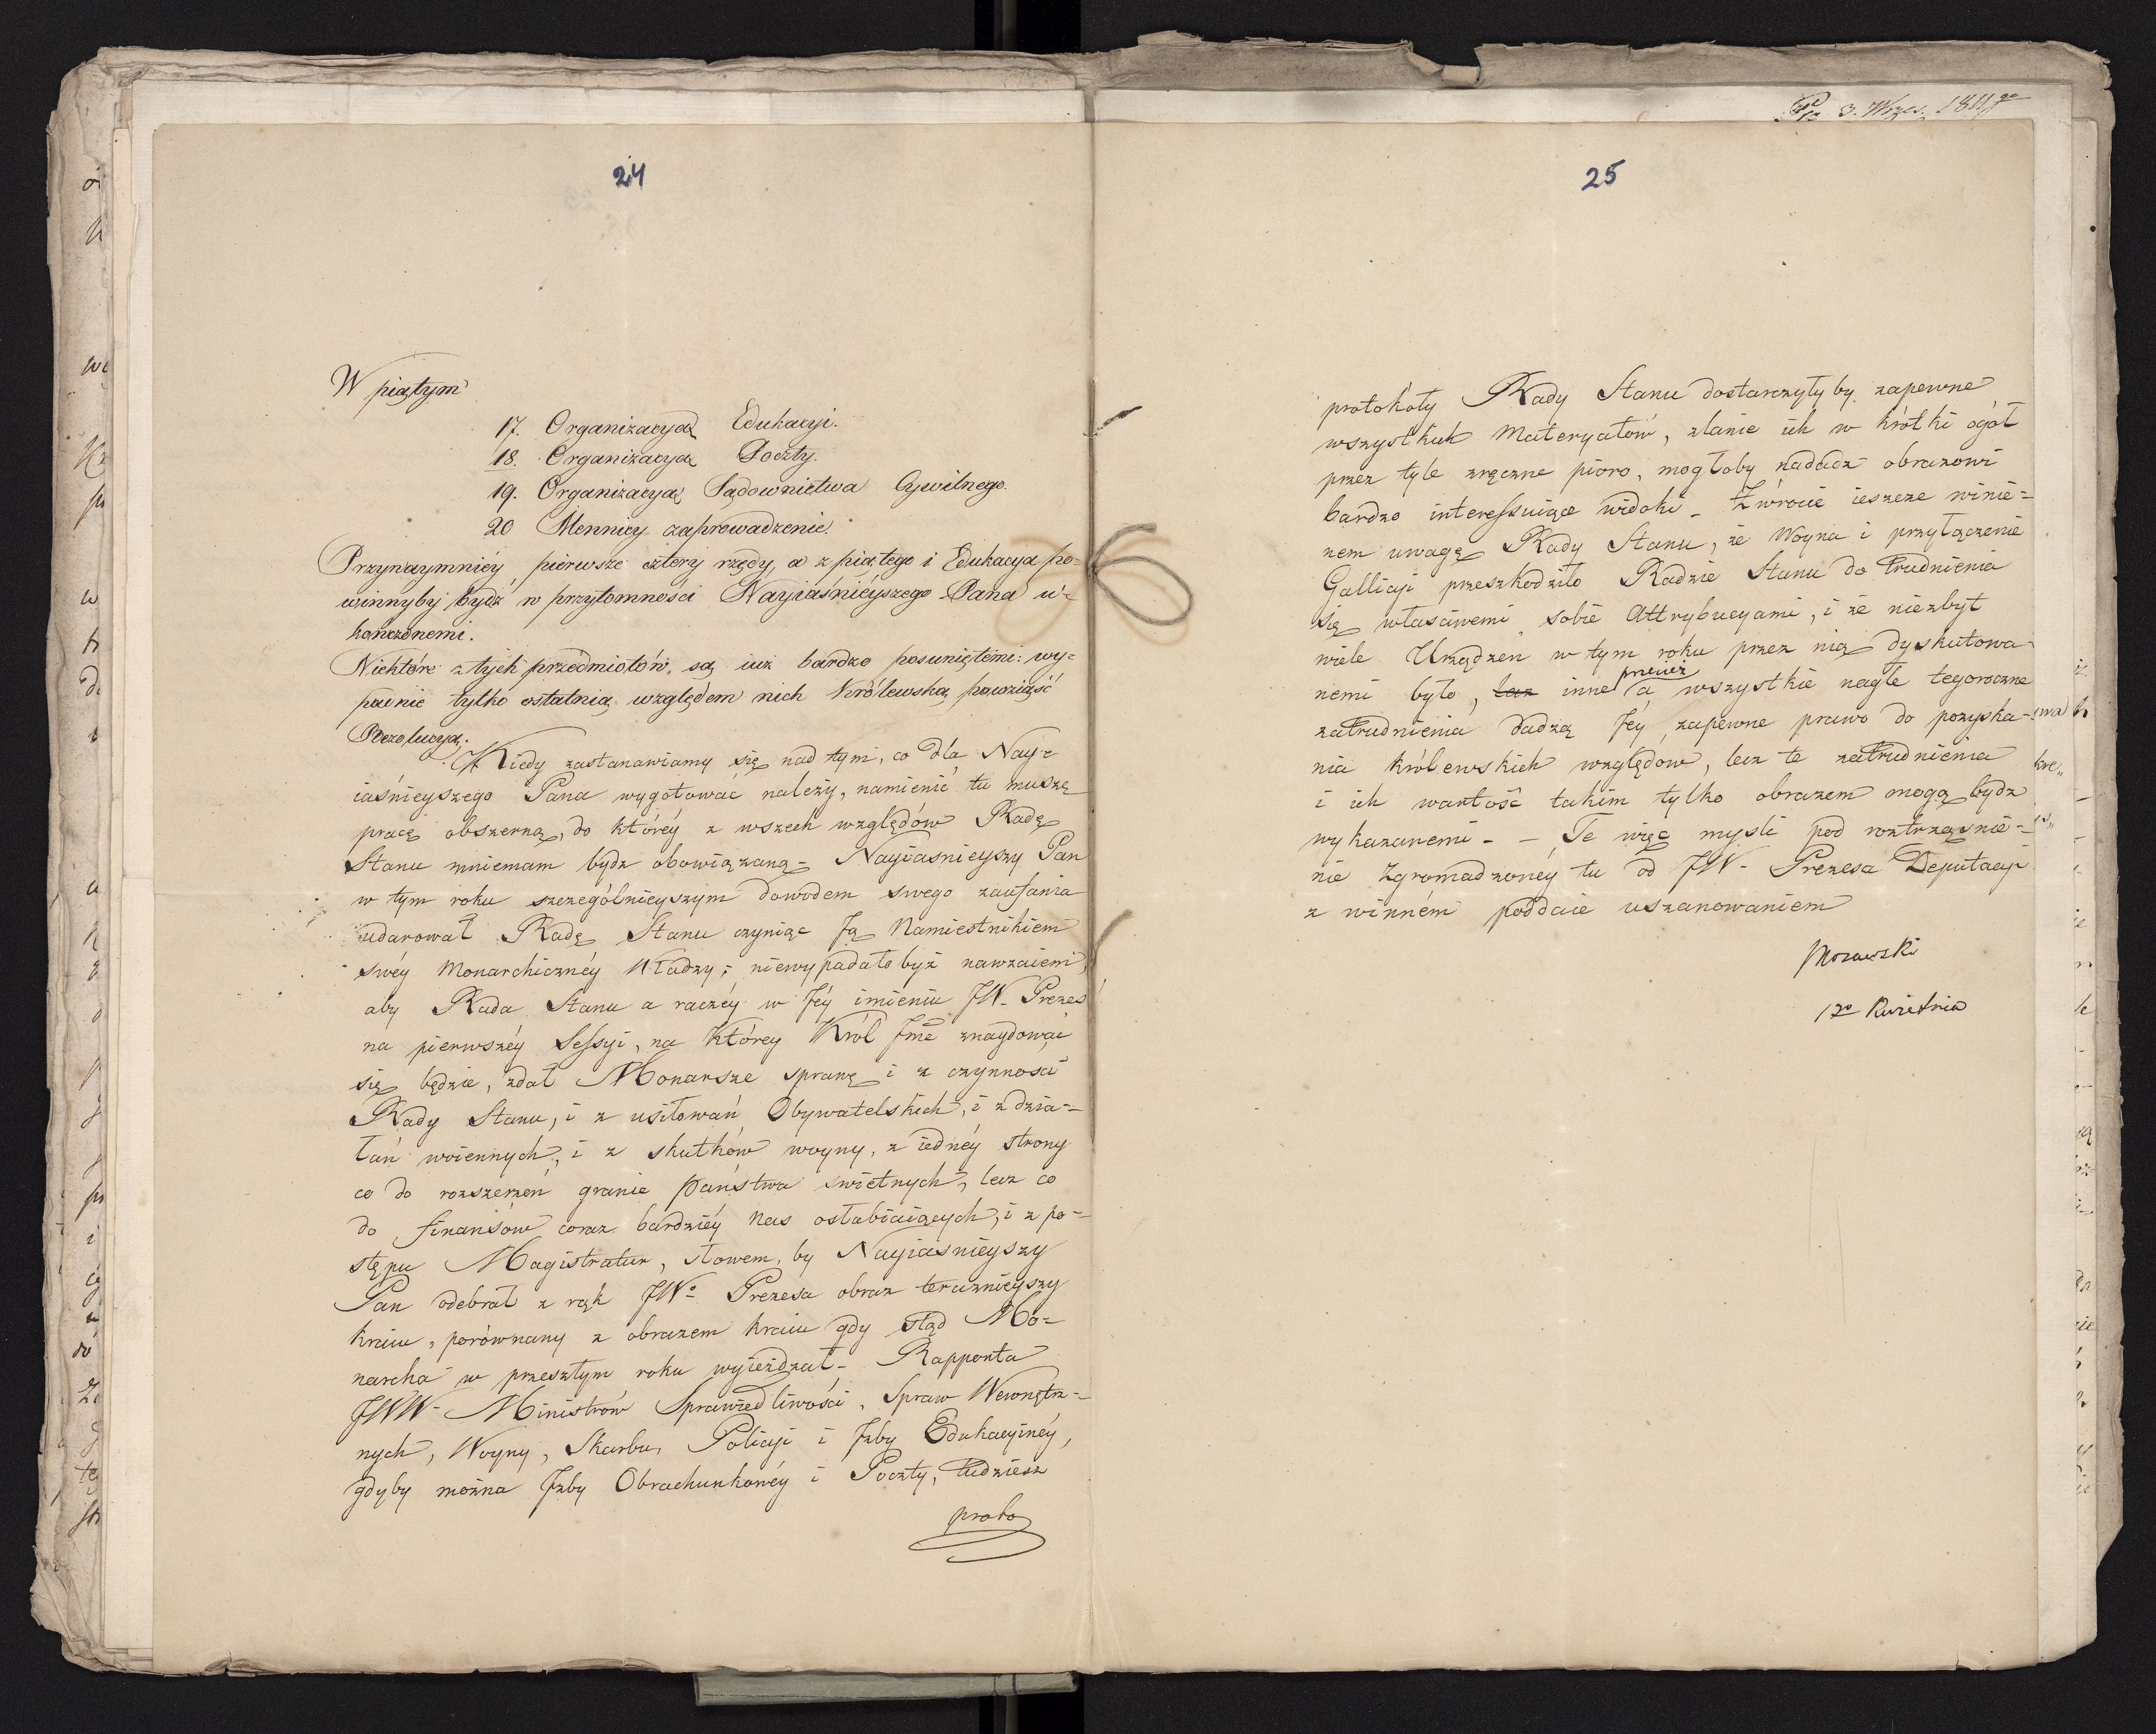 24
W piątym
17. Organizacya Edukacyi.
18. Organizacya Poczty.
19. Organizacya Sądownictwa Cywilnego.
20 Mennicy zaprowadzenie.
Przynaymniéy pierwsze cztery rzędy, a z piątego i Edukacya po=
winnyby bydź w przytomności Nayiaśniéyszego Pana u=
kończonemi.
Niektóre z tych przedmiotów, są iuż bardzo posuniętemi: wy=
padnie tylko ostatnią względem nich Królewską powziąść
Rezolucyą.
Kiedy zastanawiamy się nad tym, co dla Nay=
iaśnieyszego Pana wygotować należy, namienić tu muszę
pracę obszerną, do któréy z wszech względów Radę
Stanu mniemam bydź obowiązaną – Nayiasnieyszy Pan
w tym roku szczególnieyszym dowodem swego zaufania
udarował Radę Stanu czyniąc Ją Namiestnikiem
swéy Monarchicznéy Władzy; niewypadałobyż nawzaiem,
aby Rada Stanu a raczéy w Jéy imieniu JW. Prezes
na pierwszéy Sessyi, na któréy Król Jmć znaydować
się będzie, zdał Monarsze sprawę i z czynności
Rady Stanu, i z usiłowań Obywatelskich, i z dzia=
łań woiennych, i z skutków woyny, z iednéy strony
co do rozszerzeń granic Państwa swietnych, lecz co
do finansów coraz bardziéy Nas osłabiaiących, i z po=
stępu Magistratur, słowem, by Nayiaśnieyszy
Pan odebrał z rąk JW. Prezesa obraz teraznieyszy
kraiu, porównany z obrazem kraiu gdy stąd Mo=
narcha w przeszłym roku wyieżdzał – Rapporta
JWW. Ministrów Sprawiedliwości, Spraw Wewnętrz=
nych, Woyny, Skarbu, Policyi i Izby Edukacyinéy,
gdyby można Izby Obrachunkowéy i Poczty, tudziesz
proto
3. Wrzes. 1811
25
protokoły Rady Stanu dostarczyłyby zapewne
wszystkich Materyałów, zlanie ich w krótki ogół
przez tyle zręczne pioro, mogłoby nadadź obrazowi
bardzo interessuiące widoki – Zwrocić ieszcze winie=
nem uwagę Rady Stanu, że Woyna i przyłączenie
Gallicyi przeszkodziło Radzie Stanu do trudnienia
się własciwemi sobie Attrybucyami, i że niezbyt
wiele Urządzeń w tym roku przez nią dyskutowa=
nemi było, lecz inne przeież a wszystkie nagłe tegoroczne
zatrudnienia dadzą Jéy zapewne prawo do pozyska=
nia królewskich względow, lecz te zatrudnienia
i ich wartość takim tylko obrazem mogą bydz
wykazanemi – – Te więc mysli pod roztrząsnie=
nie Zgromadzonéy tu od JW. Prezesa Deputacyi
z winném poddaie uszanowaniem
Morawski
12 Kwietnia